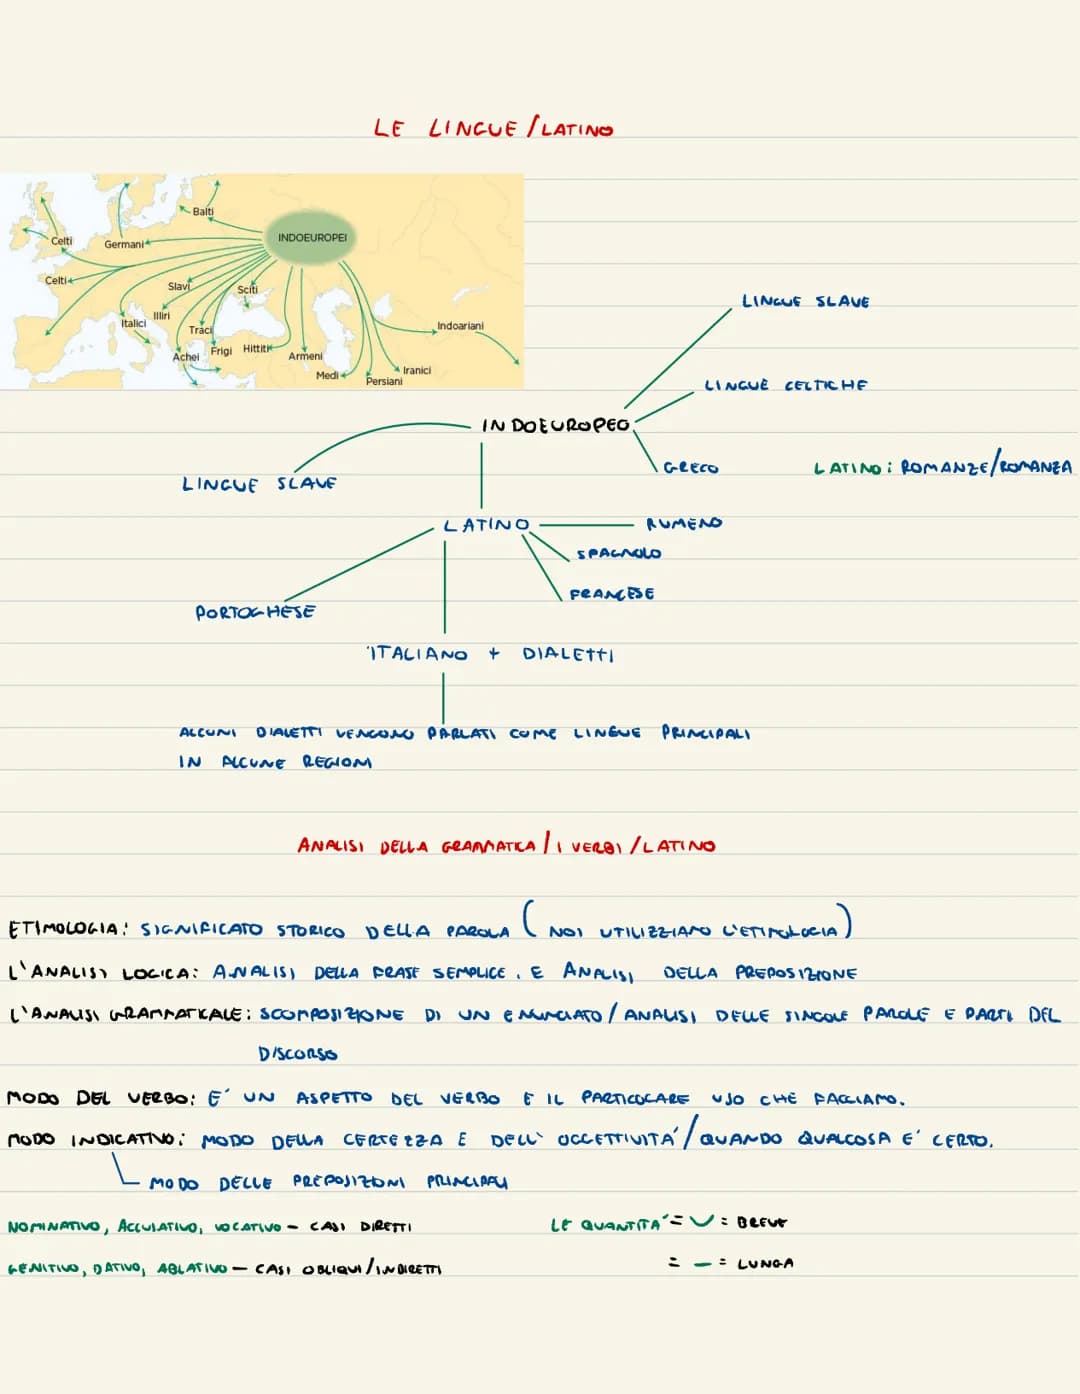 LE LINGUE/LATINO
Balti
INDOEUROPEI
Celti
Germani
Celti
Slavi
Sciti
Illiri
Italici
Traci
Indoariani
Achei
Frigi
Hittiti
Armeni
Medi
Iranici
Persiani
LINGUE SLAVE
LINGUE CELTICHE
INDOEUROPEO
GRECO
LATINO: ROMANZE/ROMANZA
LINGUE SLAVE
LATINO
RUMENO
SPAGNOLO
FRANCESE
PORTOGHESE
ITALIANO + DIALETTI
ALCUNI DIALETTI VENGONO PARLATI COME LINGUE PRINCIPALI
IN ALCUNE REGIONI
ANALISI DELLA GRAMMATICA/I VERBI/LATINO
ETIMOLOGIA: SIGNIFICATO STORICO DELLA PAROLA (NOI UTILIZZIAMO L'ETIMOLOGIA)
L'ANALISI LOGICA: ANALISI DELLA FRASE SEMPLICE. E ANALISI DELLA PREPOSIZIONE
L'ANALISI GRAMMATICALE: SCOMPOSIZIONE DI UN ENUNCIATO/ANALISI DELLE SINGOLE PAROLE E PARTI DEL
DISCORSO
MODO DEL VERBO: E' UN ASPETTO DEL VERBO E IL PARTICOLARE USO CHE FACCIAMO.
MODO INDICATIVO: MODO DELLA CERTEZZA E DELL' OGGETTIVITA'/QUANDO QUALCOSA E' CERTO.
MODO DELLE PREPOSIZIONI PRINCIPALI
NOMINATIVO, ACCUSATIVO, VOCATIVO - CASI DIRETTI
LE QUANTITA' = ∪ = BREVE
GENITIVO, DATIVO, ABLATIVO - CASI OBLIQUI/INDIRETTI
= - = LUNGA